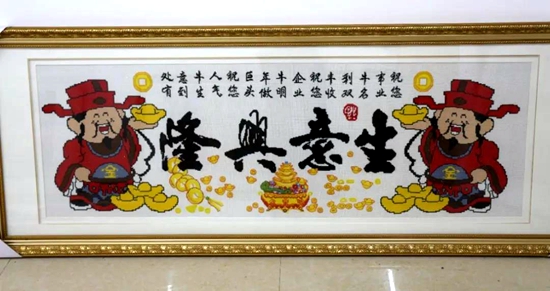 祝您事业牛名利双丰收祝您企业牛明年做巨头祝您人气牛生意到处有
生意興隆